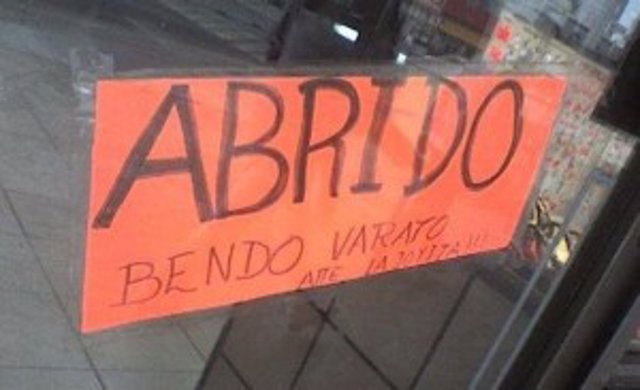 ABRIDO
BENDO VARATO
ATTE. LA JOYITA!!!